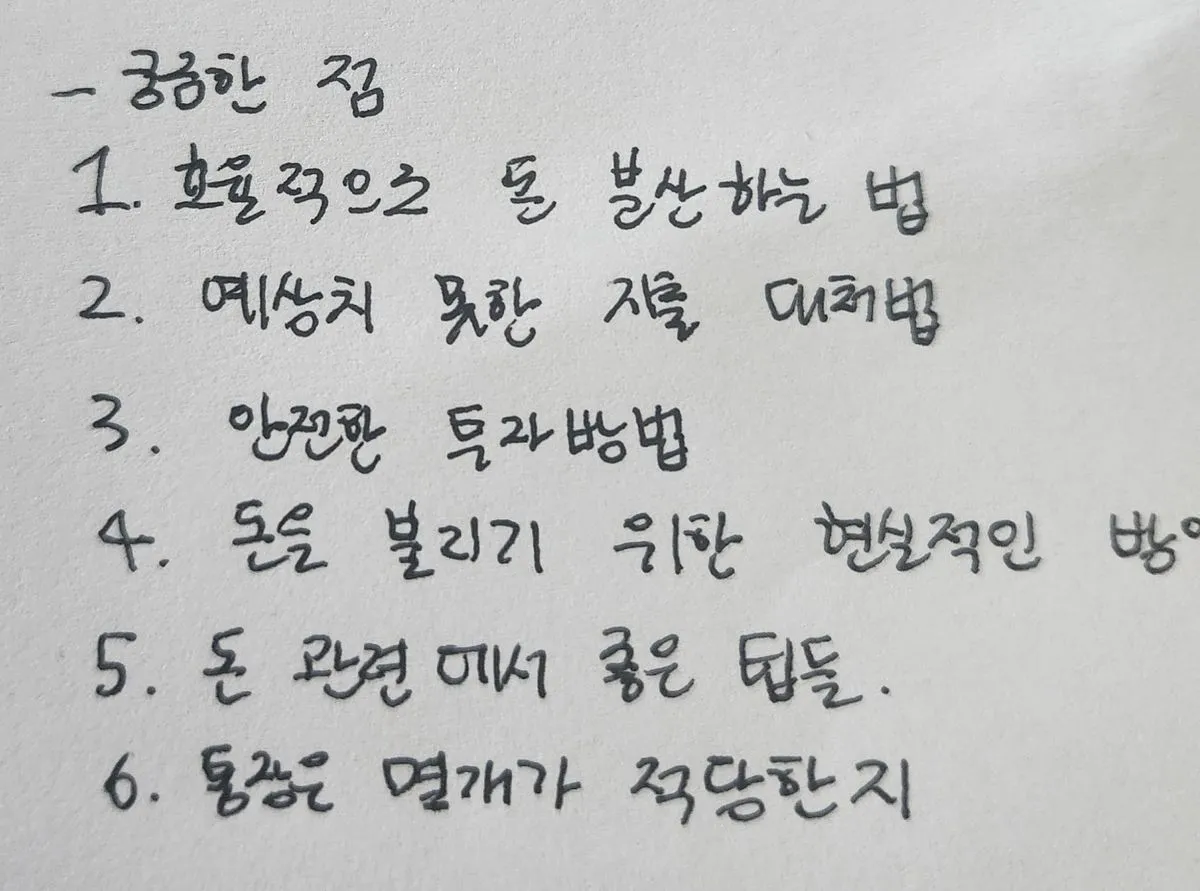 - 궁금한 점
1. 효율적으로 돈 불산하는 법
2. 예상치 못한 지출 대처법
3. 안전한 투자방법
4. 돈을 불리기 위한 현실적인
5. 돈 관련에서 좋은 팁들.
6. 통장은 몇개가 적당한지